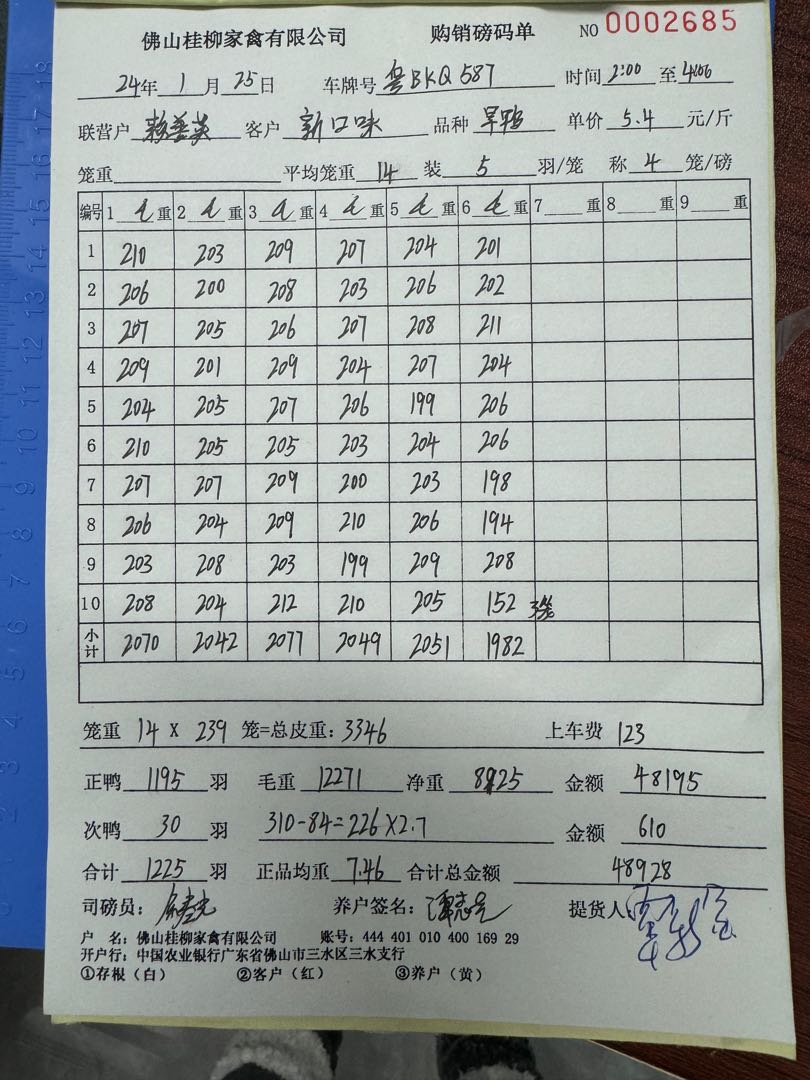 佛山桂柳家禽有限公司 购销磅码单 NO 0002685
24年 1月 25日 车牌号 粤BKQ587 时间 2:00 至 4:06
联营户 赖善英 客户 新口味 品种 旱鸭 单价 5.4 元/斤
笼重 平均笼重 14 装 5 羽/笼 称 4 笼/磅
编号 1 重 2 重 3 重 4 重 5 重 6 重 7 重 8 重 9 重
1 210 203 209 207 204 201
2 206 200 208 203 206 202
3 207 205 206 207 208 211
4 209 201 209 204 207 204
5 204 205 207 206 199 206
6 210 205 205 203 204 206
7 207 207 209 200 203 198
8 206 204 209 210 206 194
9 203 208 203 199 209 208
10 208 204 212 210 205 152 3笼
小计 2070 2042 2077 2049 2051 1982
笼重 14 X 239 笼=总皮重: 3346 上车费 123
正鸭 1195 羽 毛重 12271 净重 8925 金额 48195
次鸭 30 羽 310-84=226X2.7 金额 610
合计 1225 羽 正品均重 7.46 合计总金额 48928
司磅员: 养户签名: 提货人:
户 名: 佛山桂柳家禽有限公司 账号: 444 401 010 400 169 29
开户行: 中国农业银行广东省佛山市三水区三水支行
①存根(白) ②客户(红) ③养户(黄)